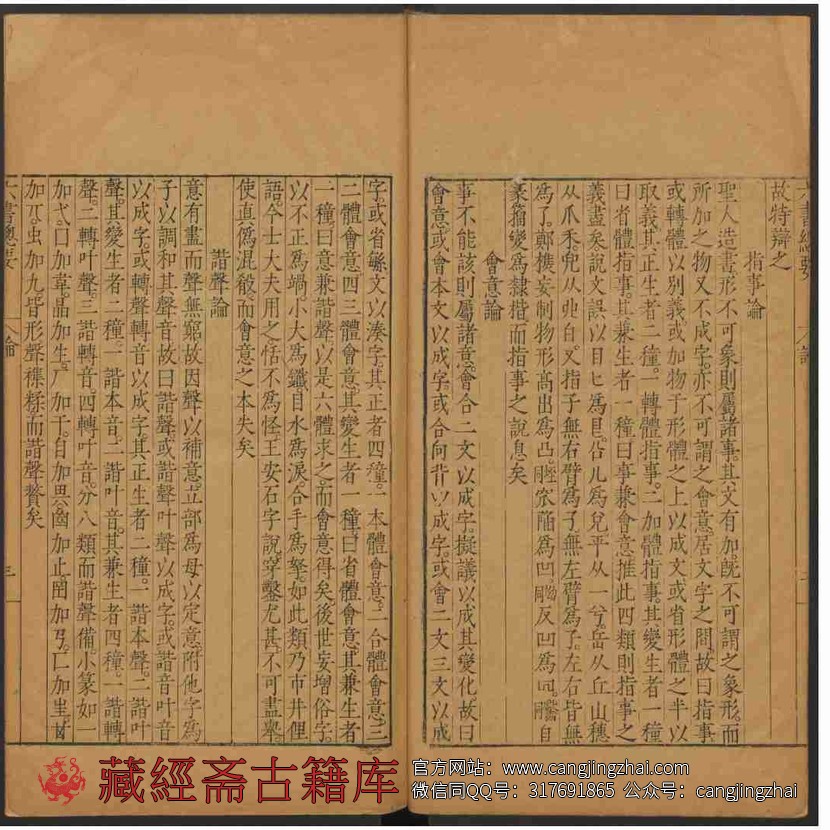 六書總要
故特辯之
指事論
聖人造書形不可象則屬諸事其文有加既不可謂之象形而
所加之物又不成字亦不可謂之會意居文字之間故曰指事
或轉體以別義或加物于形體之上以成文或省形體之半以
取義其正生者二種一轉體指事二加體指事其變生者一種
曰省體指事其兼生者一種曰事兼會意推此四類則指事之
義盡矣說文誤以目匕為㫐台儿為兒乎从一兮岳从丘山穗
从爪禾兜从白又指孑無右臂為孑無左臂為孓左右皆無
為了鄭樵妄制物形高出為凸窊陷為凹反凹為自
篆籀變為隸楷而指事之說息矣
會意論
事不能該則屬諸意會合二文以成字擬議以成其變化故曰
會意或會本文以成字或合向背以成字或會二文三文以成
字或省繇文以湊字其正者四種一本體會意二合體會意三
二體會意四三體會意其變生者一種曰省體會意其兼生者
一種曰意兼諧聲以是六體求之而會意得矣後世妄增俗字
以不正為喎小大為鑯目水為淚合手為拏如此類乃市井俚
語今士大夫用之恬不為怪王安石字說穿鑿尤甚不可盡舉
使直偽混殽而會意之本失矣
諧聲論
意有盡而聲無窮故因聲以補意立部為母以定意附他字為
子以調和其聲音故曰諧聲或諧聲叶聲以成字或諧音叶音
以成字或轉聲轉音以成字其正生者二種一諧本聲二諧叶
聲其變生者二種一諧本音二諧叶音其兼生者四種一諧轉
聲二轉叶聲三諧轉音四轉叶音分八類而諧聲備小篆如一
加弋囗加韋晶加生厂加干自加畀齒加止网加丂匚加
加丌虫加九皆形聲襍糅而諧聲贅矣
六書總要
論
三
藏經斋古籍库
官方网站：www.cangjingzhai.com
微信同QQ号：317691865 公众号：cangjingzhai